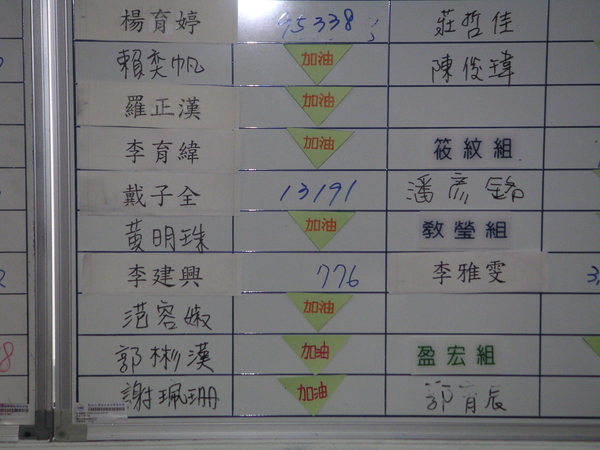 楊育婷 45338 莊哲佳
賴奕帆 加油 陳俊瑋
羅正漢 加油
李育緯 加油 筱紋組
戴子全 13191 潘彥銘
黃明珠 加油 教瑩組
李建興 776 李雅雯
范容嫩 加油
郭彬漢 加油 盈宏組
謝珮珊 加油 郭育辰